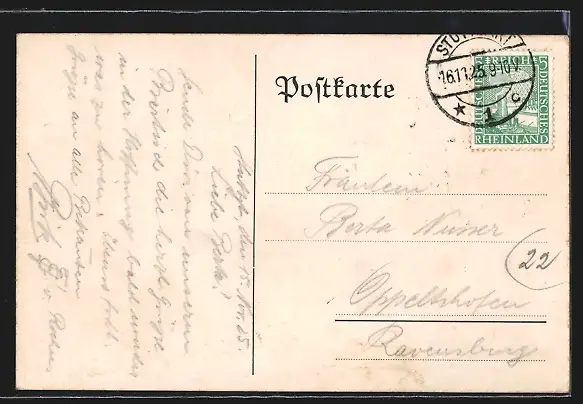 Postkarte
STUTTGART
16.11.25.9-10V.
★ 1 c
DEUTSCHES REICH 5
DEUTSCHES
RHEINLAND
Fräulein
Berta
Oppeltshofen
Ravensburg
22
den 15. Nov. 25.
Liebe Berta!
sende Dir von unserem
die herzl. Grüße
in der Hoffnung bald wieder
was zu hören,
Grüße an alle Bekannten